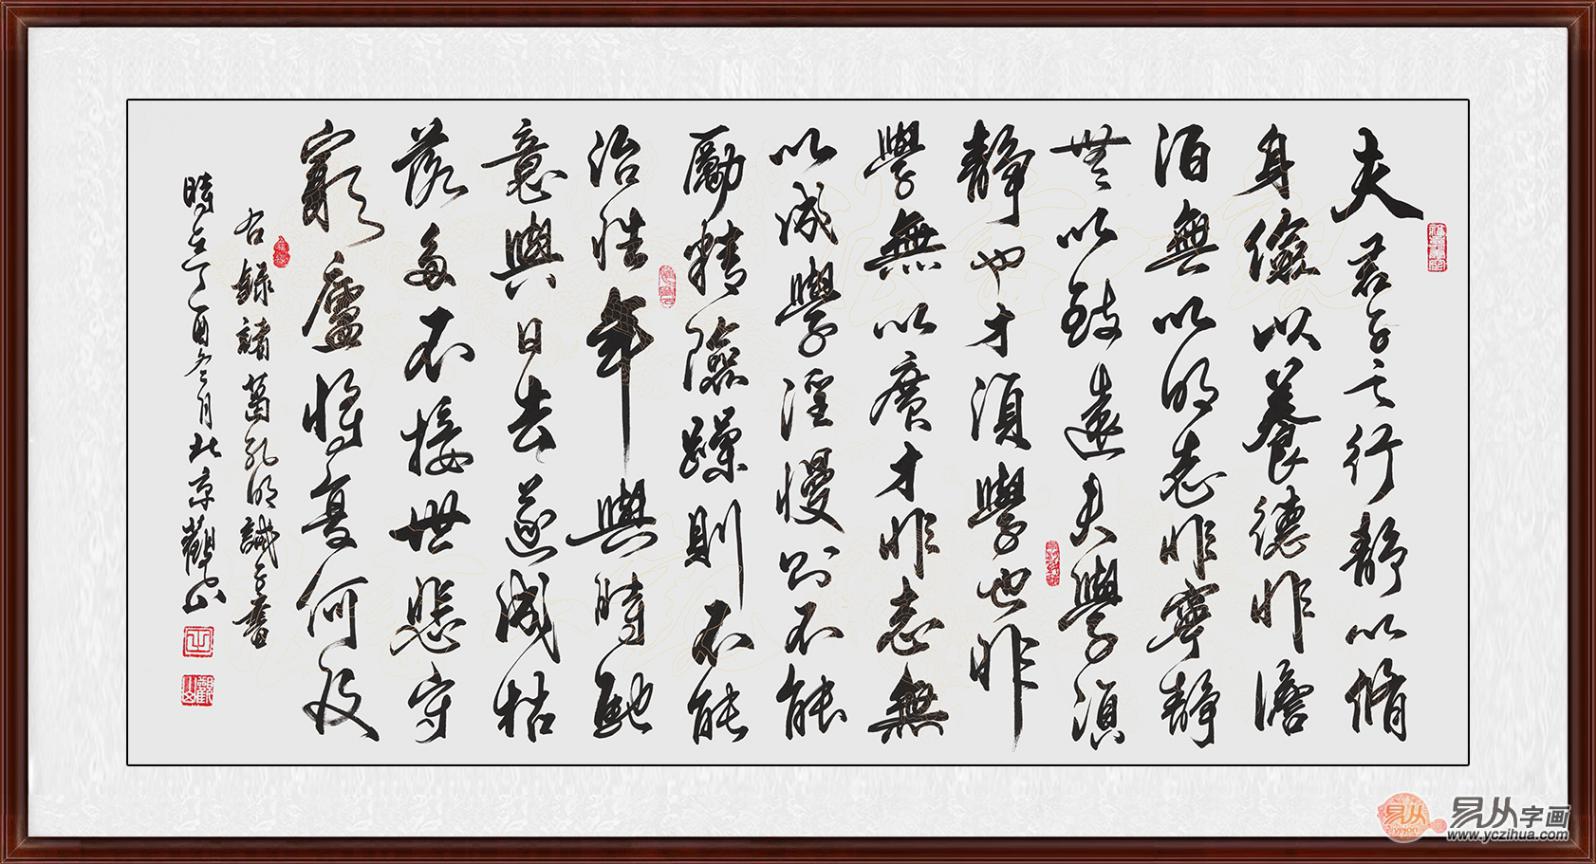 夫君子之行靜以脩
身儉以養德非澹
泊無以明志非寧靜
無以致遠夫學須
靜也才須學也非
學無以廣才非志無
以成學淫慢則不能
勵精險躁則不能
治性年與時馳
意與日去遂成枯
落多不接世悲守
窮廬將復何及
右錄諸葛孔明誡子書
時在丁酉冬月北京觀山
易从
易从字画
www.yczihua.com